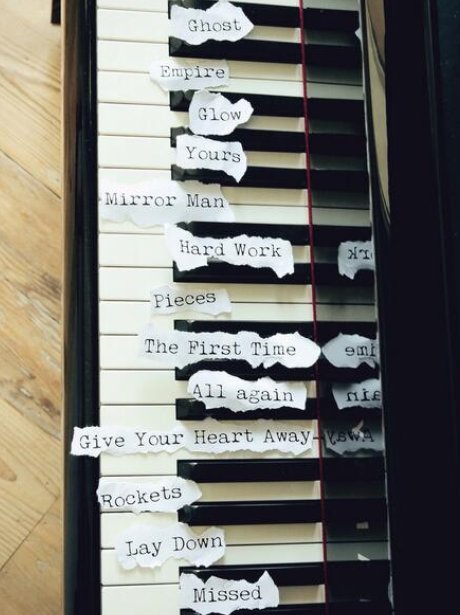 Ghost
Empire
Glow
Yours
Mirror Man
Hard Work
Pieces
The First Time
All again
Give Your Heart Away
Rockets
Lay Down
Missed